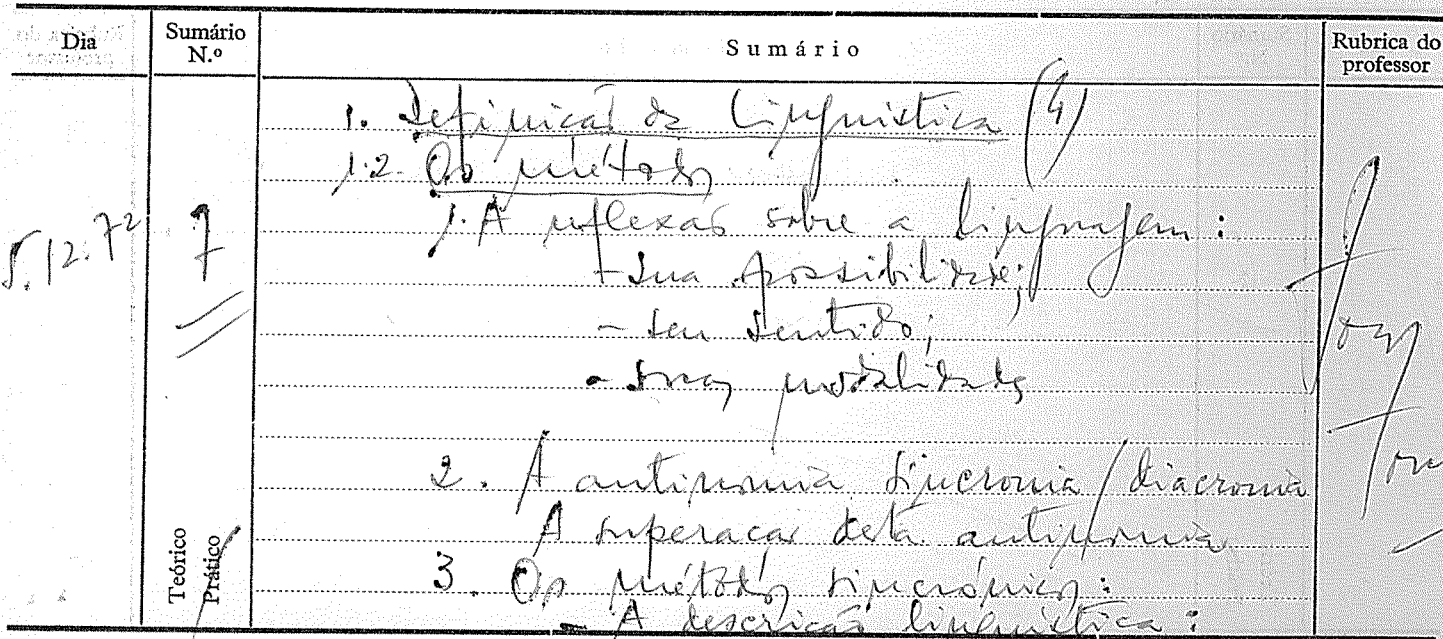 Dia
Sumário N.º
Sumário
Rubrica do professor
1. Definição da Linguística (4)
1.2. Os métodos
5.12.72
7
1. A reflexão sobre a linguagem:
- sua possibilidade;
- seu sentido;
- suas modalidades
2. A antinomia sincronia / diacronia
A superação desta antinomia
Teórico
Prático
3. Os métodos sincrónicos:
- A descrição linguística: